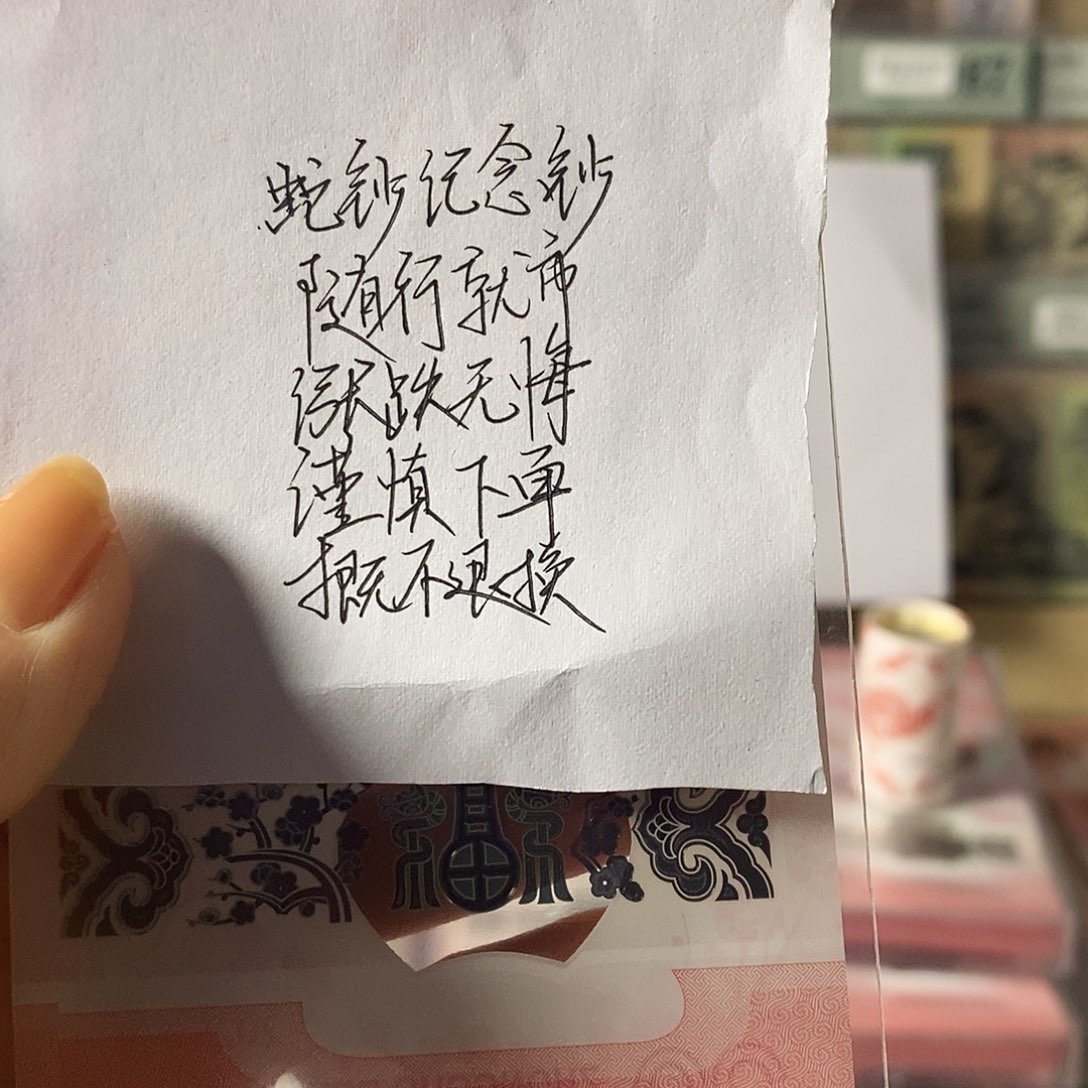 蛇钞纪念钞
随行就市
涨跌无悔
谨慎下单
概不退换